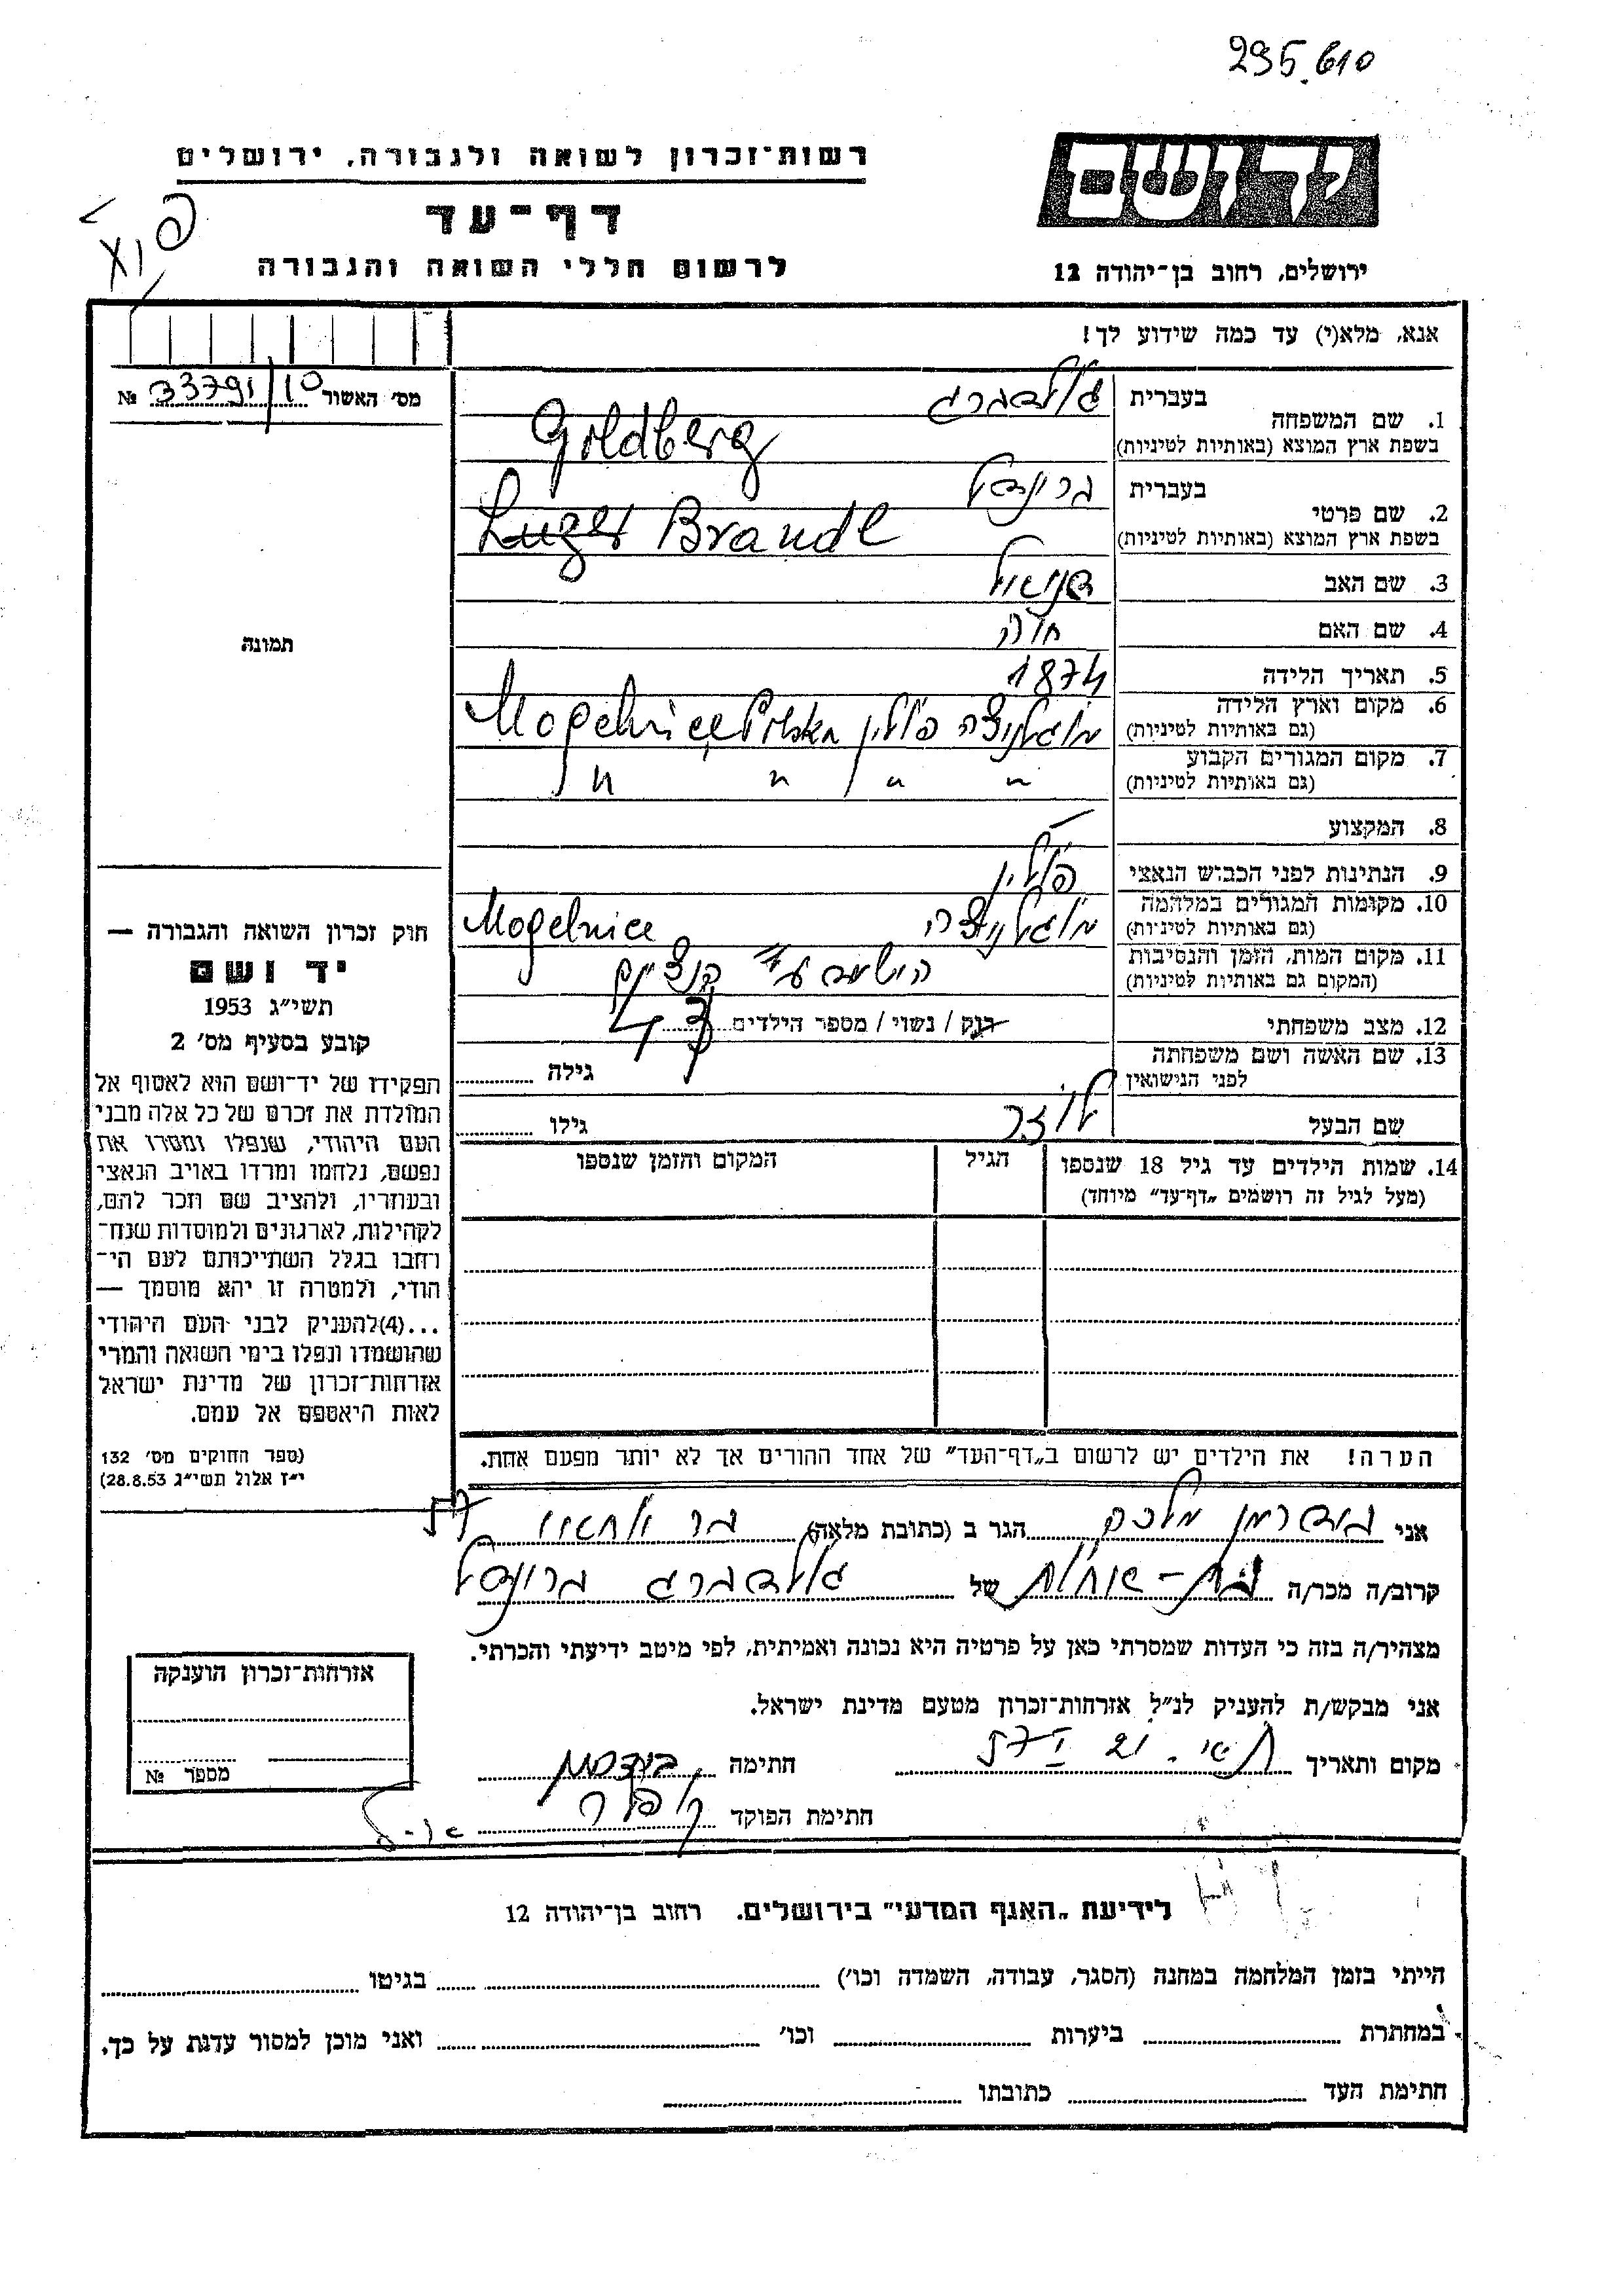 295.610
רשות־זכרון לשואה ולגבורה, ירושלים
יד ושם
דף־עד
לרשום חללי השואה והגבורה
ירושלים, רחוב בן־יהודה 12
אנא, מלא(י) עד כמה שידוע לך!
מס׳ האשור 33791/10 №
1. שם המשפחה בעברית גולדברג
בשפת ארץ המוצא (באותיות לטיניות) Goldberg
2. שם פרטי בעברית ברונדל
בשפת ארץ המוצא (באותיות לטיניות) Brandl
3. שם האב דניאל
4. שם האם חוה
5. תאריך הלידה 1874
6. מקום וארץ הלידה מוגלניצה פולין Mogelnice Polska
(גם באותיות לטיניות)
7. מקום המגורים הקבוע " " " "
(גם באותיות לטיניות)
8. המקצוע —
9. הנתינות לפני הכבוש הנאצי פולין
10. מקומות המגורים במלחמה מוגלניצה Mogelnice
(גם באותיות לטיניות)
11. מקום המות, הזמן והנסיבות הושמד ע"י הנצים
(המקום גם באותיות לטיניות)
12. מצב משפחתי רווק / נשוי / מספר הילדים
13. שם האשה ושם משפחתה
לפני הנישואין גילה
שם הבעל לוזר גילו
14. שמות הילדים עד גיל 18 שנספו הגיל המקום והזמן שנספו
(מעל לגיל זה רושמים „דף־עד״ מיוחד)
הערה! את הילדים יש לרשום ב„דף־העד״ של אחד ההורים אך לא יותר מפעם אחת.
תמונה
חוק זכרון השואה והגבורה —
יד ושם
תשי״ג 1953
קובע בסעיף מס׳ 2
תפקידו של יד־ושם הוא לאסוף אל
המולדת את זכרם של כל אלה מבני
העם היהודי, שנפלו ומסרו את
נפשם, נלחמו ומרדו באויב הנאצי
ובעוזריו, ולהציב שם וזכר להם,
לקהילות, לארגונים ולמוסדות שנח־
רבו בגלל השתייכותם לעם הי־
הודי, ולמטרה זו יהא מוסמך —
...(4)להעניק לבני העם היהודי
שהושמדו ונפלו בימי השואה והמרי
אזרחות־זכרון של מדינת ישראל
לאות היאספם אל עמם.
(ספר החוקים מס׳ 132
י״ז אלול תשי״ג 28.8.53)
אני מלכה הגר ב (כתובת מלאה)
קרוב/ה מכר/ה של גולדברג ברונדל
מצהיר/ה בזה כי העדות שמסרתי כאן על פרטיה היא נכונה ואמיתית, לפי מיטב ידיעתי והכרתי.
אני מבקש/ת להעניק לנ״ל אזרחות־זכרון מטעם מדינת ישראל.
מקום ותאריך חתימה
חתימת הפוקד
אזרחות־זכרון הוענקה
מספר №
לידיעת „האגף המדעי״ בירושלים. רחוב בן־יהודה 12
הייתי בזמן המלחמה במחנה (הסגר, עבודה, השמדה וכו׳) בגיטו
במחתרת ביערות וכו׳ ואני מוכן למסור עדות על כך.
חתימת העד כתובתו